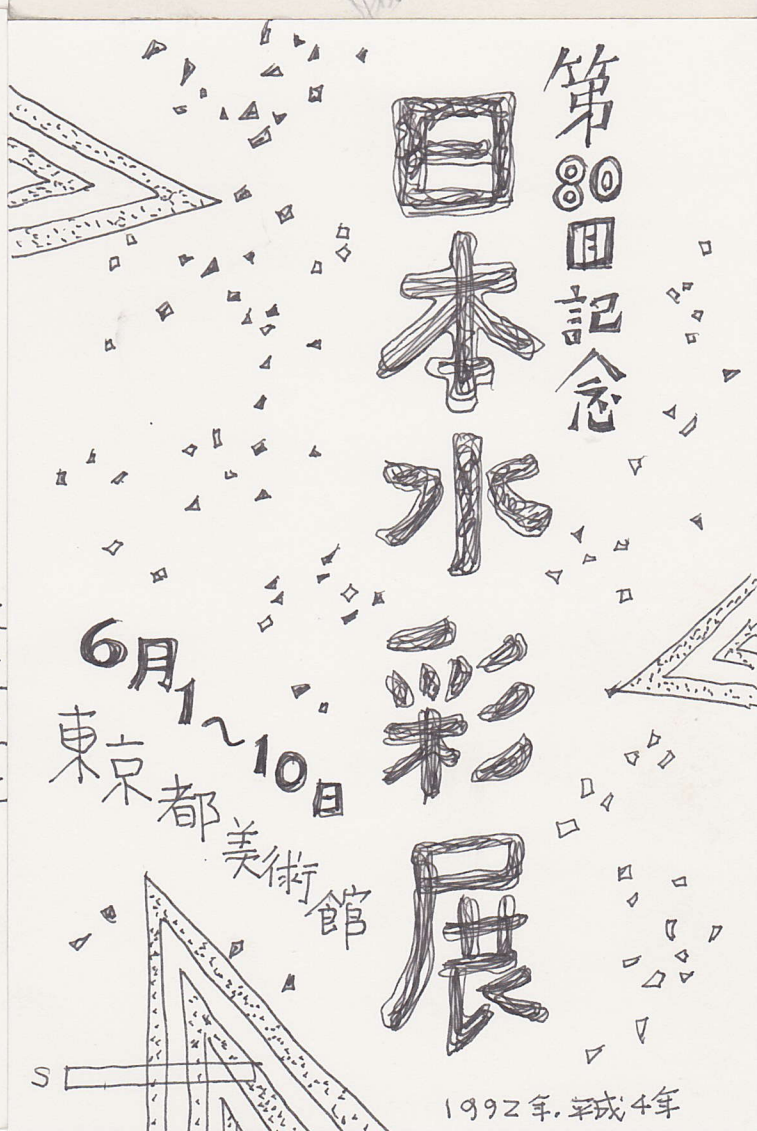 第80回記念
日本水彩展
6月1~10日
東京都美術館
S
1992年.平成4年